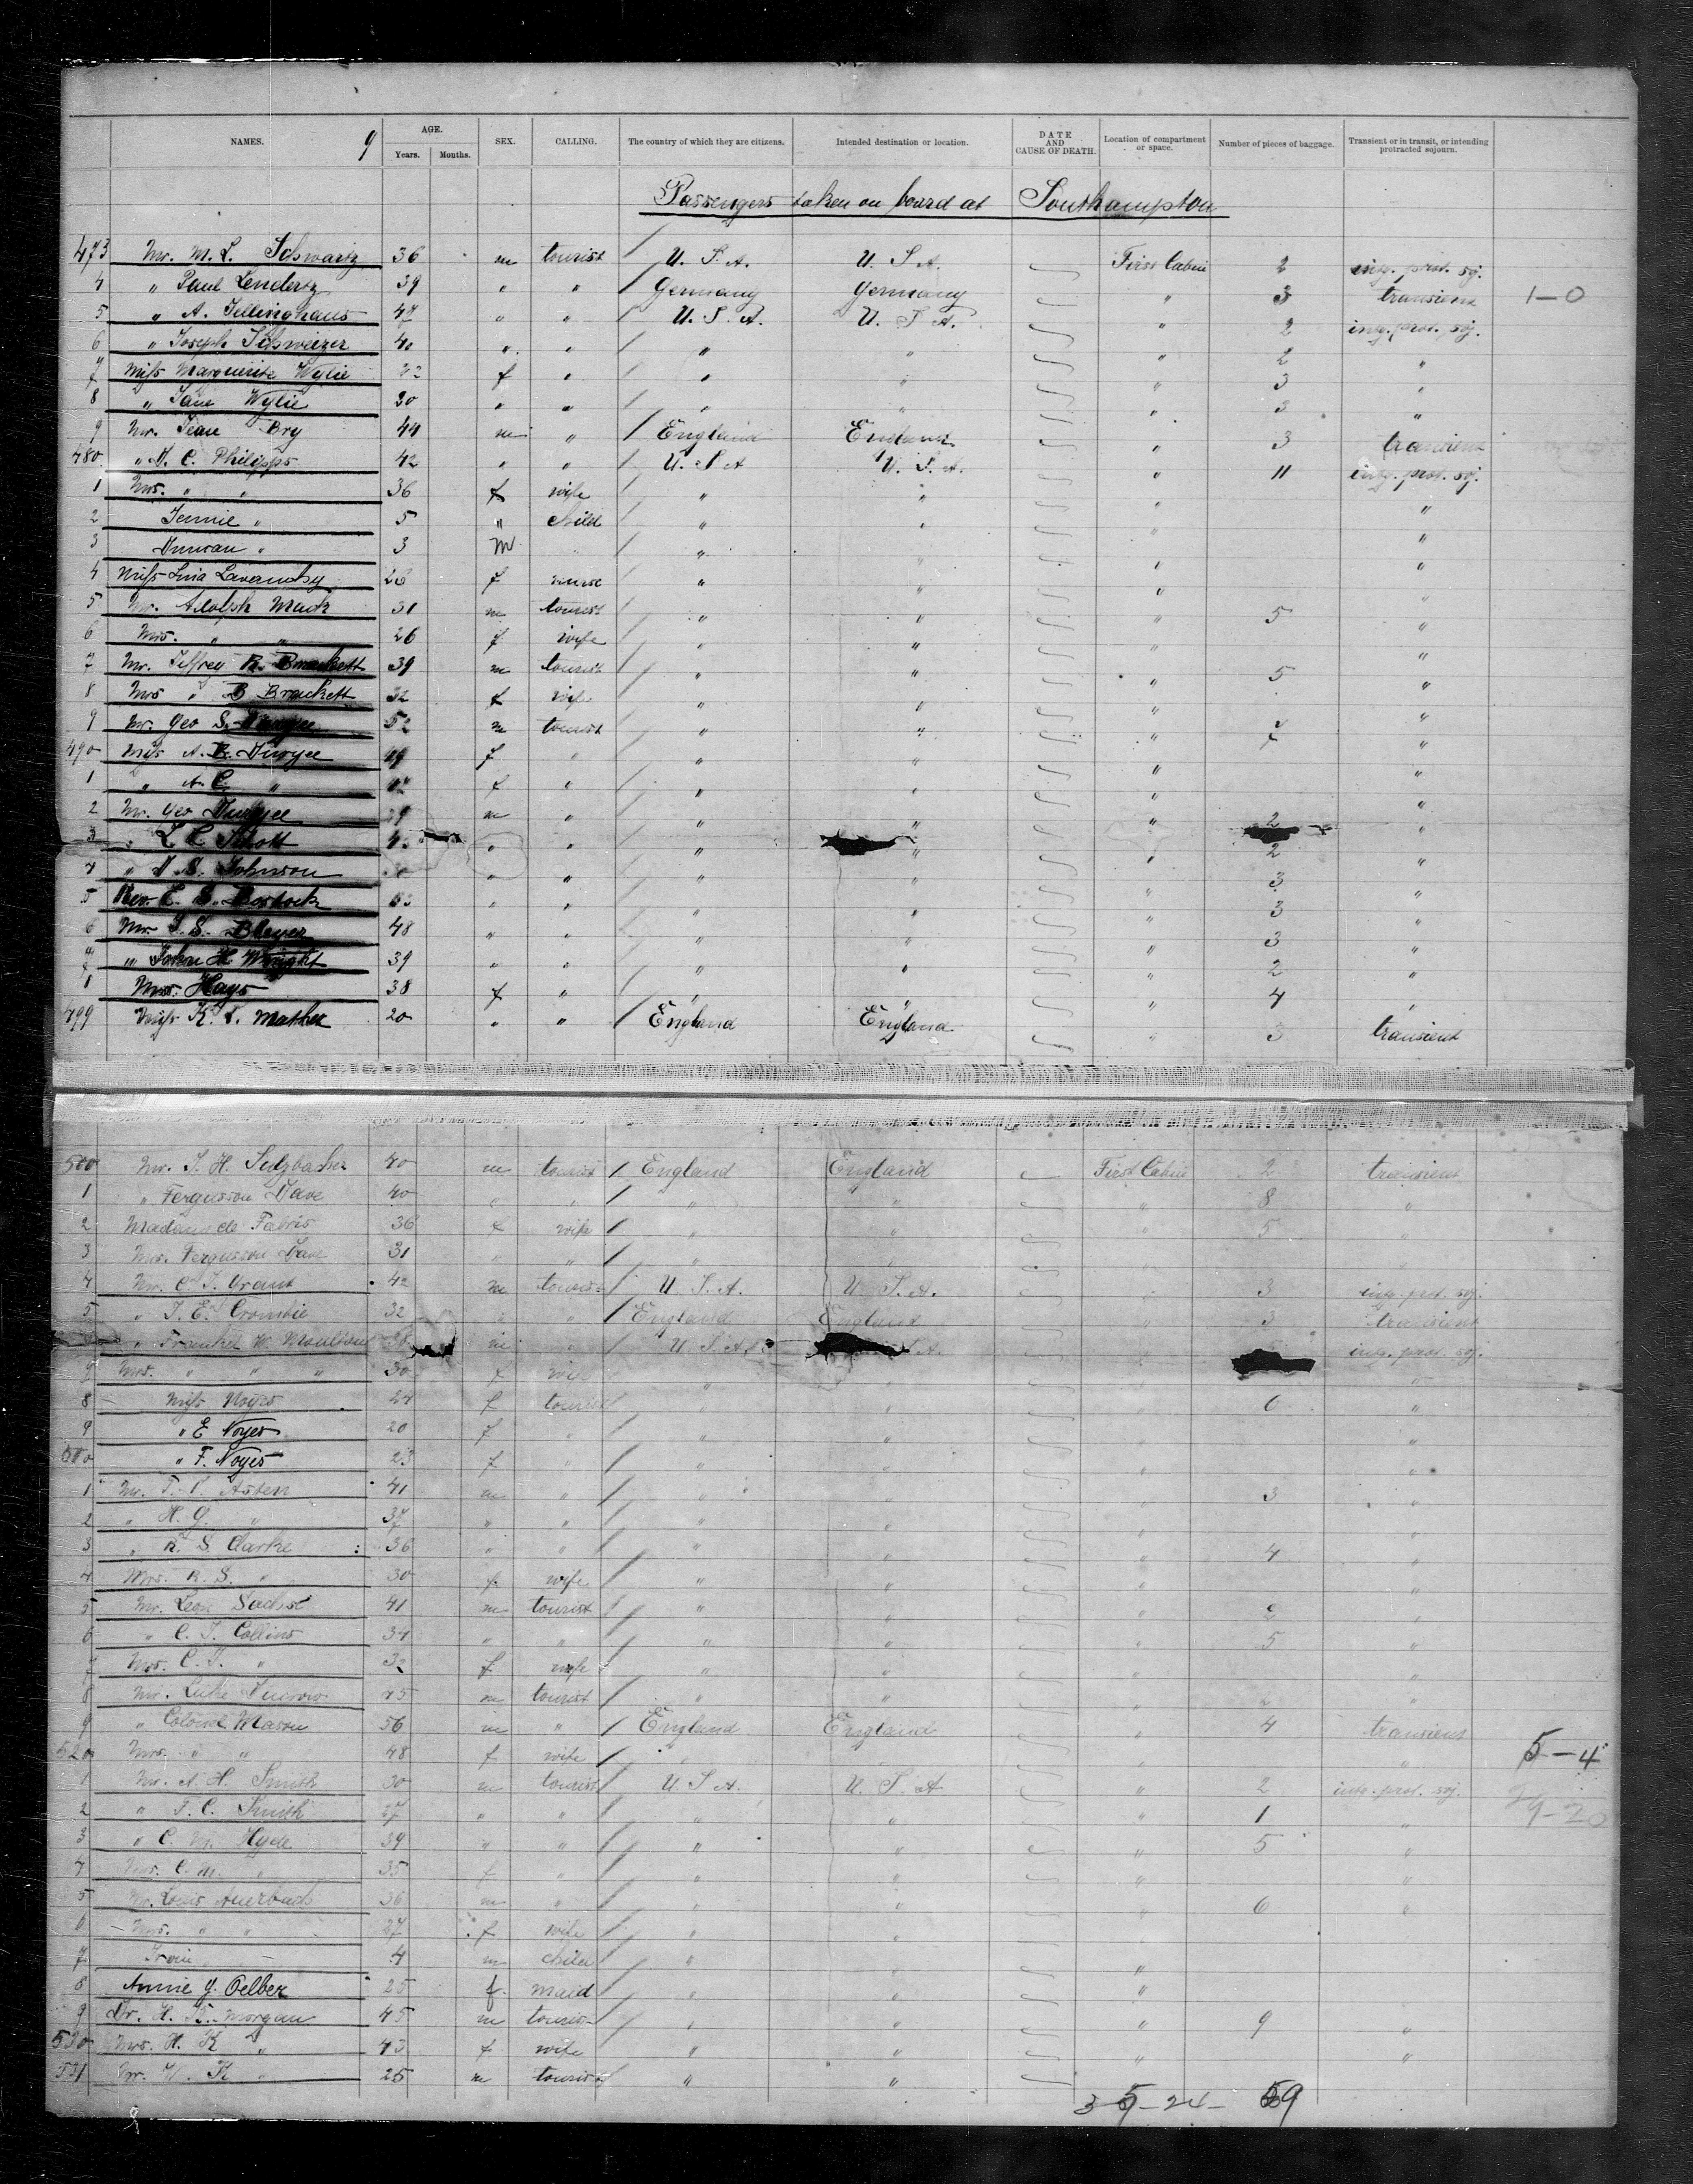 NAMES. 9 AGE. Years. Months. SEX. CALLING. The country of which they are citizens. Intended destination or location. DATE AND CAUSE OF DEATH. Location of compartment or space. Number of pieces of baggage. Transient or in transit, or intending protracted sojourn.
Passengers taken on board at Southampton
473 Mr. M. L. Schwartz 36 m tourist / U. S. A. U. S A. First Cabin 2 intg. prot. soj.
4 " Paul Lendertz 39 " " Germany Germany " 3 transient 1-0
5 " A. Tellinghaus 47 " " / U. S. A. U. S A. " 2 intg. prot. soj.
6 " Joseph Schweizer 40 " " / " " " 2 "
7 Miss Marguerite Wylie 22 f " / " " " 3 "
8 " Jane Wylie 30 " " / " " " 3 "
9 Mr. Jean Bry 44 m " / England England " 3 transient
480 " C. Philipps 42 " " / U. S A U. S. A. " 11 intg. prot. soj.
1 Mrs. " " 36 f wife / " " " "
2 Jennie " 5 " child / " " " "
3 Duncan " 3 m / " " " "
4 Miss Lina 26 f nurse / " " " "
5 Mr. Adolph Mack 31 m tourist / " " " 5 "
6 Mrs. " " 26 f wife / " " "
7 Mr. Jeffrey R. Brackett 39 m tourist / " " " 5 "
8 Mrs " B Brackett 32 f wife / " " " "
9 Mr. Geo S. Duryee 52 m tourist / " " " 7 "
490 Miss A. B. Duryee 49 f " / " " " "
1 " A. C. " f " / " " " "
2 Mr. Geo Duryee 29 m " / " " " 2 "
3 " L C Schott " " / " " 2 "
4 " S. Johnson " " / " " " 3 "
5 Rev. C. S. Bostock 53 " " / " " " 3 "
6 Mr J. S. Bleyer 48 " " / " " " 3 "
7 " John H Wright 39 " " / " " " 2 "
8 Mrs. Hays 38 f " / " " " 4 "
499 Miss K. L. Mather 20 " " / England England " 3 transient
500 Mr. J. H. Sulzbacher 40 m tourist / England England First Cabin 2 transient
1 " Fergusson Dave 40 " " / " " " 8 "
2 Madame de Fabris 36 f wife / " " " 5 "
3 Mrs. Fergusson Dave 31 " " / " "
4 Mr. C. J. Grant 42 m tourist / U. S. A. U. S. A. " 3 intg. prot. soj.
5 " J. E. Crombie 32 " " / England England " 3 transient
6 " Frankel W. Moulton m " / U. S A. intg. prot. soj.
7 Mrs. " " " 30 f wife / " " "
8 Miss Noyes 24 f tourist / " " " 6 "
9 " E Noyes 20 f " / " " "
510 " F. Noyes 23 f " / " " " "
1 Mr. T. Asten 41 m " / " " " 3 "
2 " H. G. " 37 " " / " " " "
3 " R. S. Clarke 36 " " / " " " 4 "
4 Mrs. R. S. " 30 f wife / " " " "
5 Mr. Leon Sachse 41 m tourist / " " " 2 "
6 " C. J. Collins 34 " " / " " " 5 "
7 Mrs. C. J. " 32 f wife / " " " "
8 Mr. Luke 45 m tourist / " " " 2 "
9 " Colonel Mason 56 m " / England England " 4 transient
520 Mrs. " " 48 f wife / " " " " 5-4
1 Mr. A. H. Smith 30 m tourist / U. S A. U. S A " 2 intg. prot. soj.
2 " F. C. Smith 27 " " / " " " 1 "
3 " C. M. Hyde 39 " " / " " " 5 "
4 Mrs. C. M. " 35 f " / " " " "
5 Mr. Louis Auerbach 36 m " / " " " 6 "
6 Mrs. " " 27 f wife / " " "
7 4 m child / " "
8 Annie G. Oelber 25 f maid / " " "
9 Dr. H. K. Morgan 45 m tourist / " " " 9 "
530 Mrs. H. K " 43 f wife / " " " "
531 Mr. K " 25 m tourist / " "
59